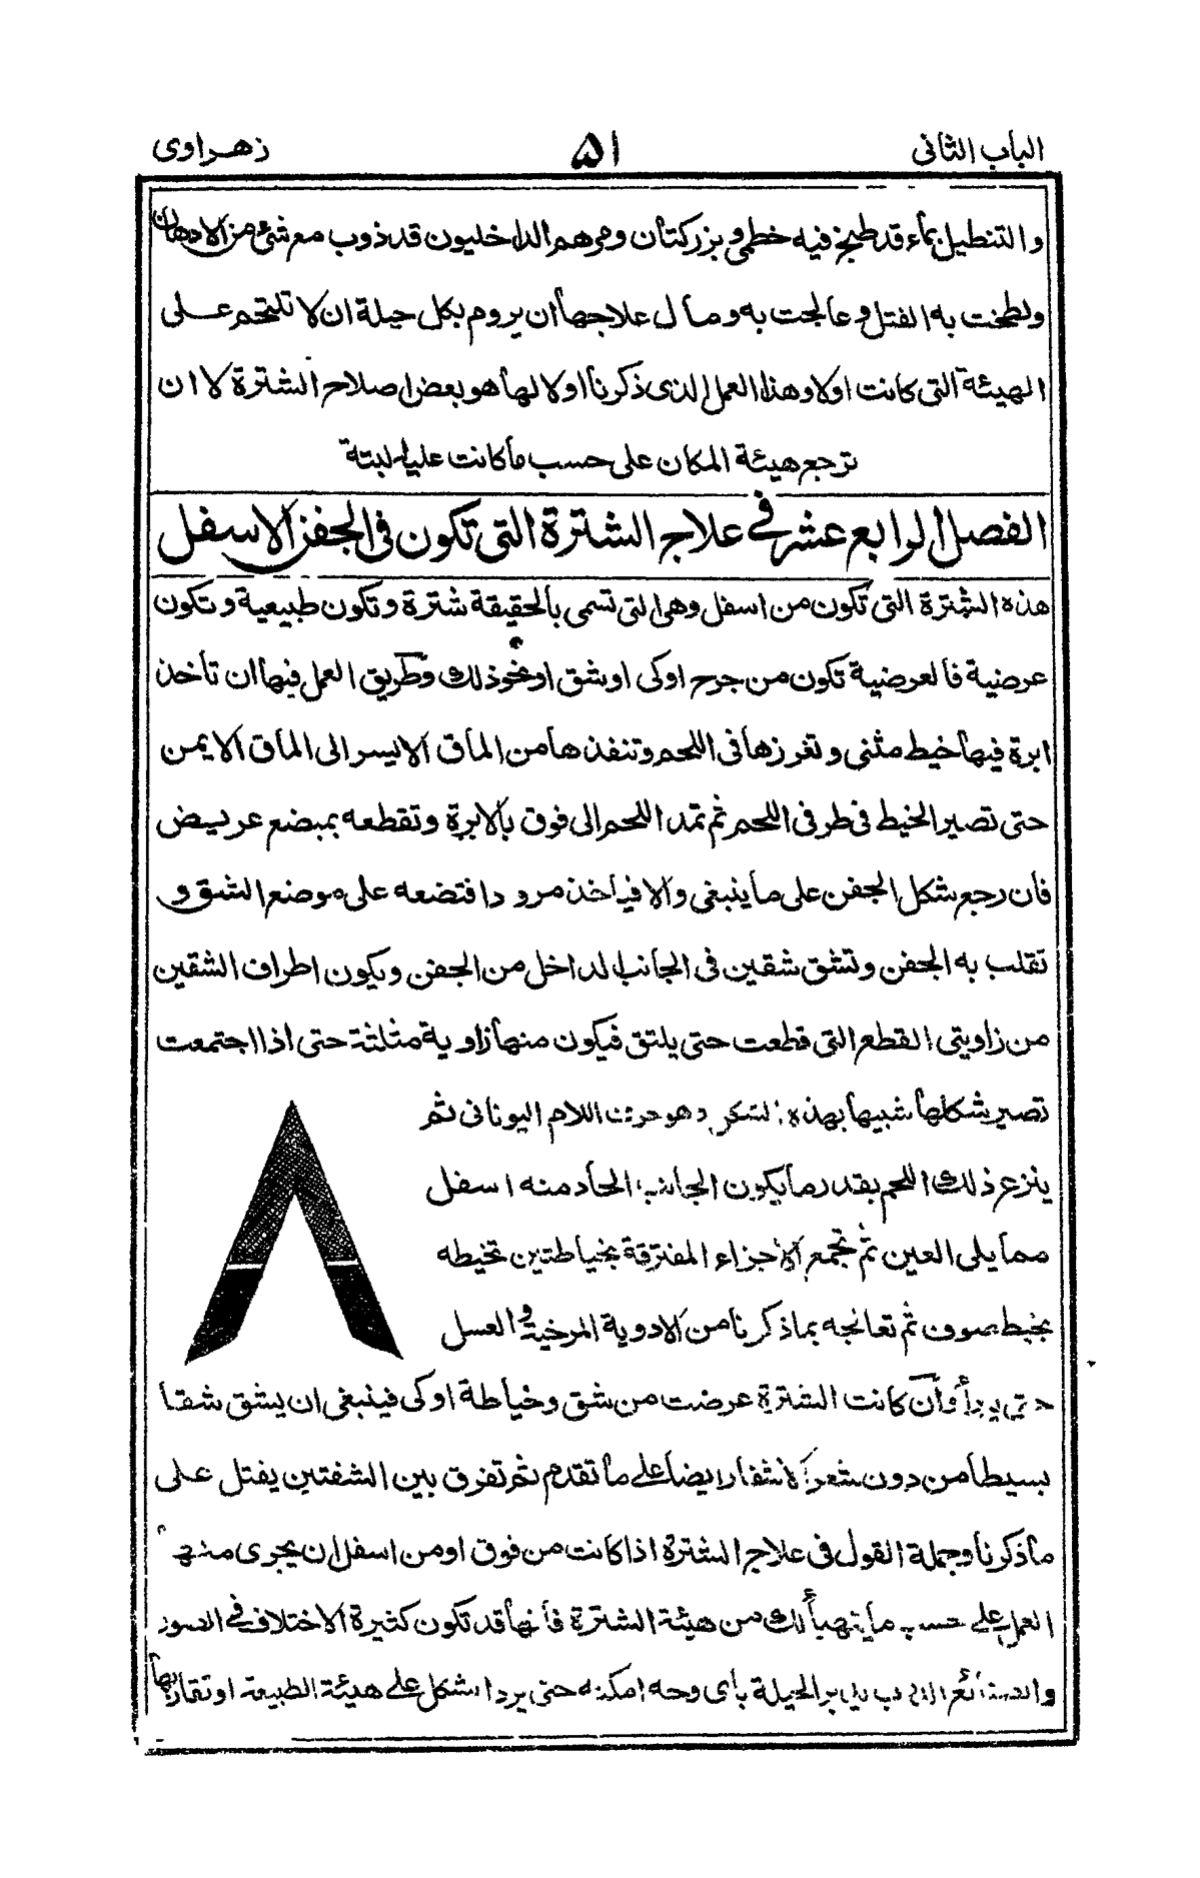 الباب الثانى ۵۱ زهراوى
والتنطيل بماء قد طبخ فيه خطمى وبزر كتان ومرهم الداخليون قد ذوب مع شئ من الادهان
ولطخت به الفتل وعالجت به وماك علاجها ان يروم بكل حيلة ان لا تلتحم على
الهيئة التى كانت اولا وهذا العمل الذى ذكرنا اولا لها هو بعض اصلاح الشترة لا ان
ترجع هيئة المكان على حسب ما كانت عليه البتة
الفصل الرابع عشر فى علاج الشترة التى تكون فى الجفن الاسفل
هذه الشترة التى تكون من اسفل وهى التى تسمى بالحقيقة شترة وتكون طبيعية وتكون
عرضية فالعرضية تكون من جرح اوكى اوشق اونحوذلك وطريق العمل فيها ان تأخذ
ابرة فيها خيط مثنى وتغرزها فى اللحم وتنفذها من الماق الايسر الى الماق الايمن
حتى تصير الخيط فى طرفى اللحم ثم تمد اللحم الى فوق بالابرة وتقطعه بمبضع عريض
فان رجع شكل الجفن على ما ينبغى والا فياخذ مرودا فتضعه على موضع الشق و
تقلب به الجفن وتشق شقين فى الجانب الداخل من الجفن ويكون اطراف الشقين
من زاويتى القطع التى قطعت حتى يلتق فيكون منها زاوية مثلثة حتى اذا اجتمعت
تصير شكلها شبيها بهذه الشكل وهو حرف اللام اليونانى ثم
ينزع ذلك اللحم بقدر ما يكون الجانب الحاد منه اسفل
مما يلى العين ثم تجمع الاجزاء المفترقة بخياطتين تخيطه
بخيط صوف ثم تعالجه بما ذكرنا من الادوية المرخية والعسل
حتى يبرأ وان كانت الشترة عرضت من شق وخياطة اوكى فينبغى ان يشق شقا
بسيطا من دون شعر الاشفار ايضا على ما تقدم ثم تفرق بين الشفتين بفتل على
ما ذكرنا وجملة القول فى علاج الشترة اذا كانت من فوق اومن اسفل ان يجرى منها
العمل على حسب ما يتهيأ لك من هيئة الشترة فانها قد تكون كثيرة الاختلاف فى الصور
والصانع يدبر الحيلة باى وجه امكنه حتى يرد الشكل على هيئة الطبيعة اوتقاربها